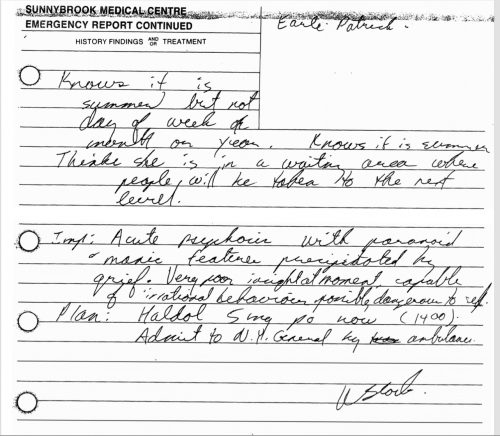 SUNNYBROOK MEDICAL CENTRE
EMERGENCY REPORT CONTINUED
HISTORY FINDINGS AND OR TREATMENT
Earle Patrick.
Knows it is
summer but not
day of week or
month or year. Knows it is summer
Thinks she is in a waiting area where
people will be taken to the next
level.
Imp: Acute psychosis with paranoid
manic features precipitated by
grief. Very poor insight at moment capable
of irrational behaviour possible dangerous to self.
Plan: Haldol 5mg po now (1400).
Admit to N.Y. General by ambulance.